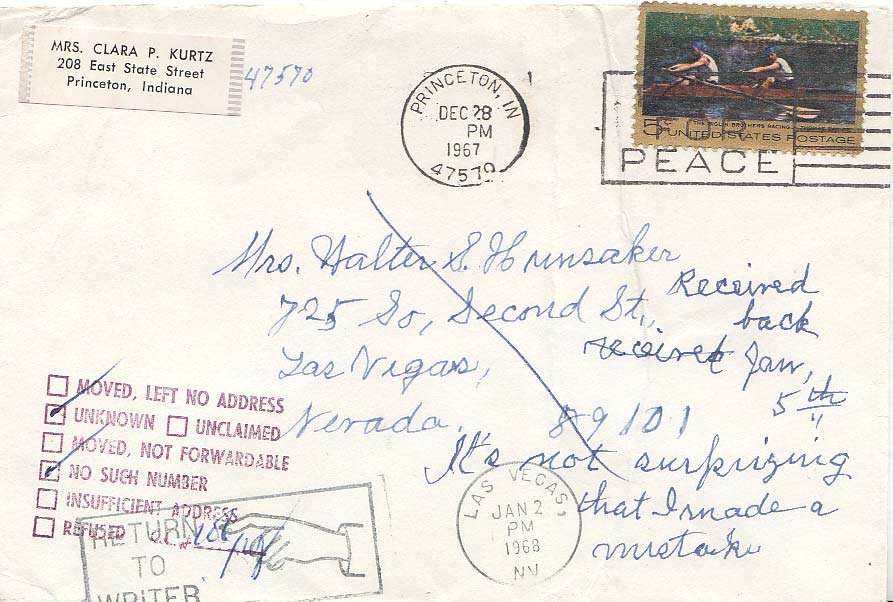 MRS. CLARA P. KURTZ
208 East State Street
Princeton, Indiana
47570
PRINCETON, IN
DEC 28
PM
1967
47570
THE BIGLIN BROTHERS RACING · THOMAS EAKINS
5c UNITED STATES POSTAGE
FOR
PEACE
Mrs. Walter S. Hunsaker
725 So, Second St.,
Las Vigas,
Nevada. 89101
Received
back
Jan,
5th
It's not surprizing
that I made a
mistake
MOVED, LEFT NO ADDRESS
UNKNOWN UNCLAIMED
MOVED, NOT FORWARDABLE
NO SUCH NUMBER
INSUFFICIENT ADDRESS
REFUSED
RETURN
TO
WRITER
LAS VEGAS,
JAN 2
PM
1968
NV